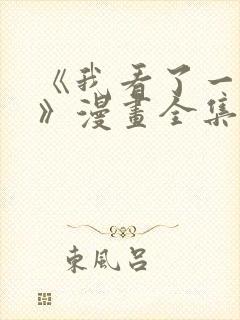 《我看了一
》漫畫全集
東風呂